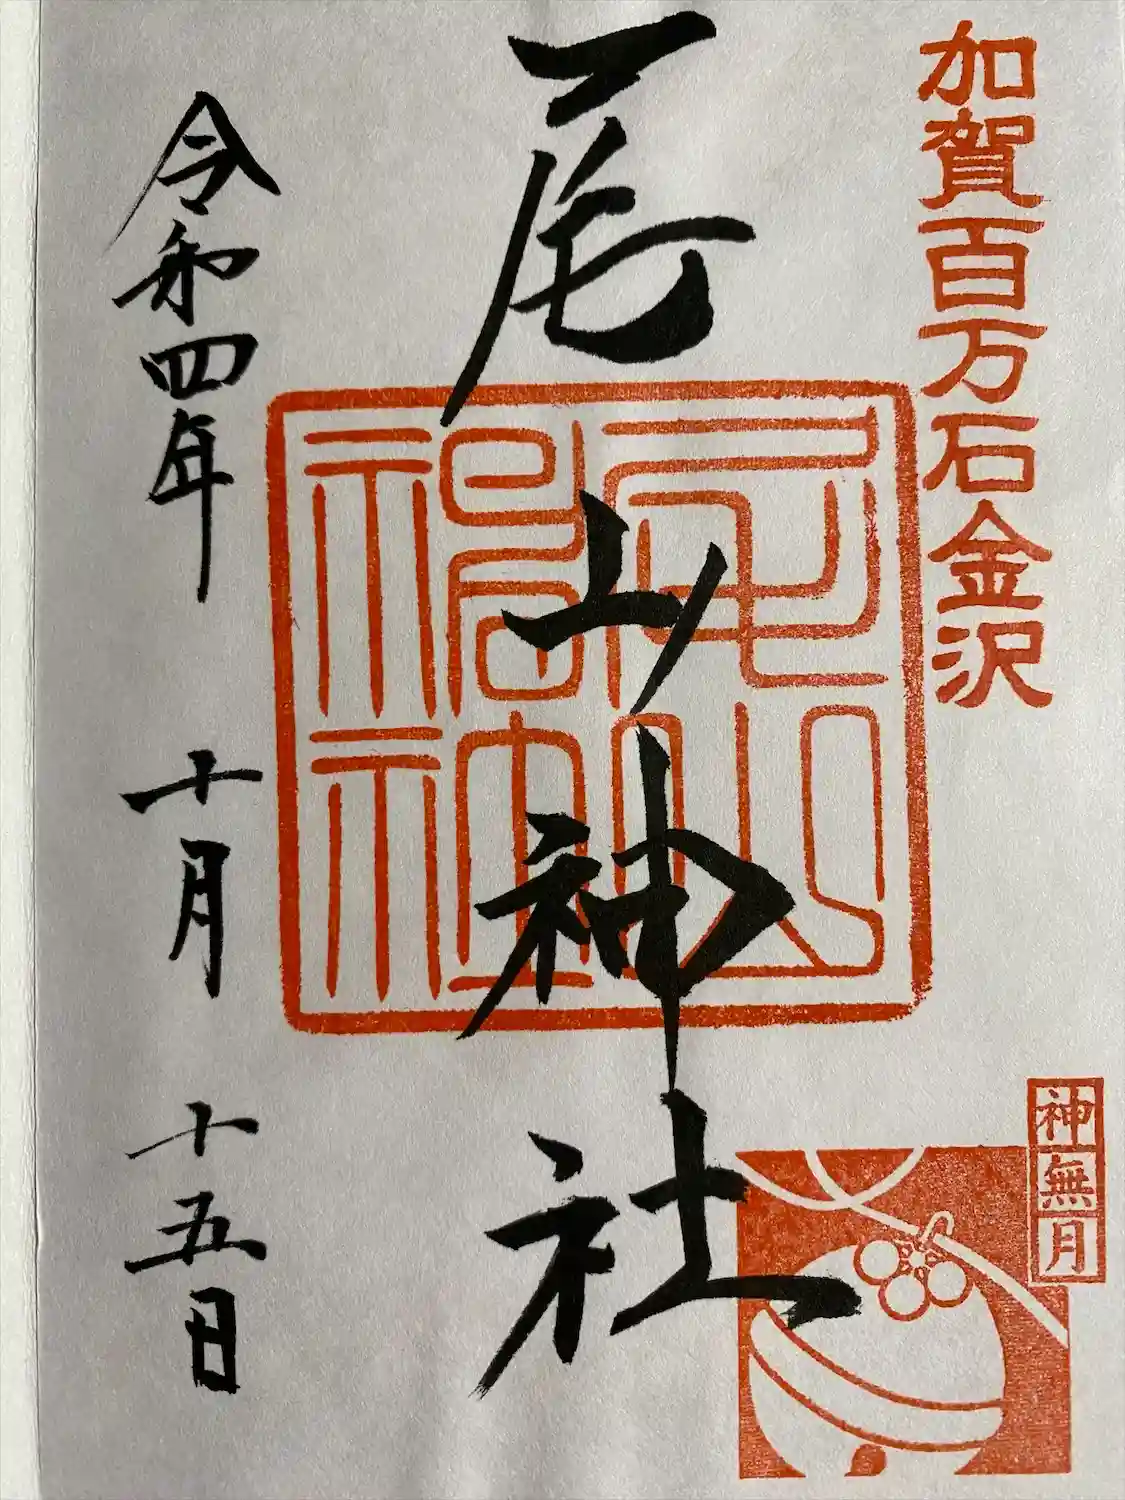 加賀百万石金沢
神無月
尾山神社
尾山神社
令和四年 十月 十五日